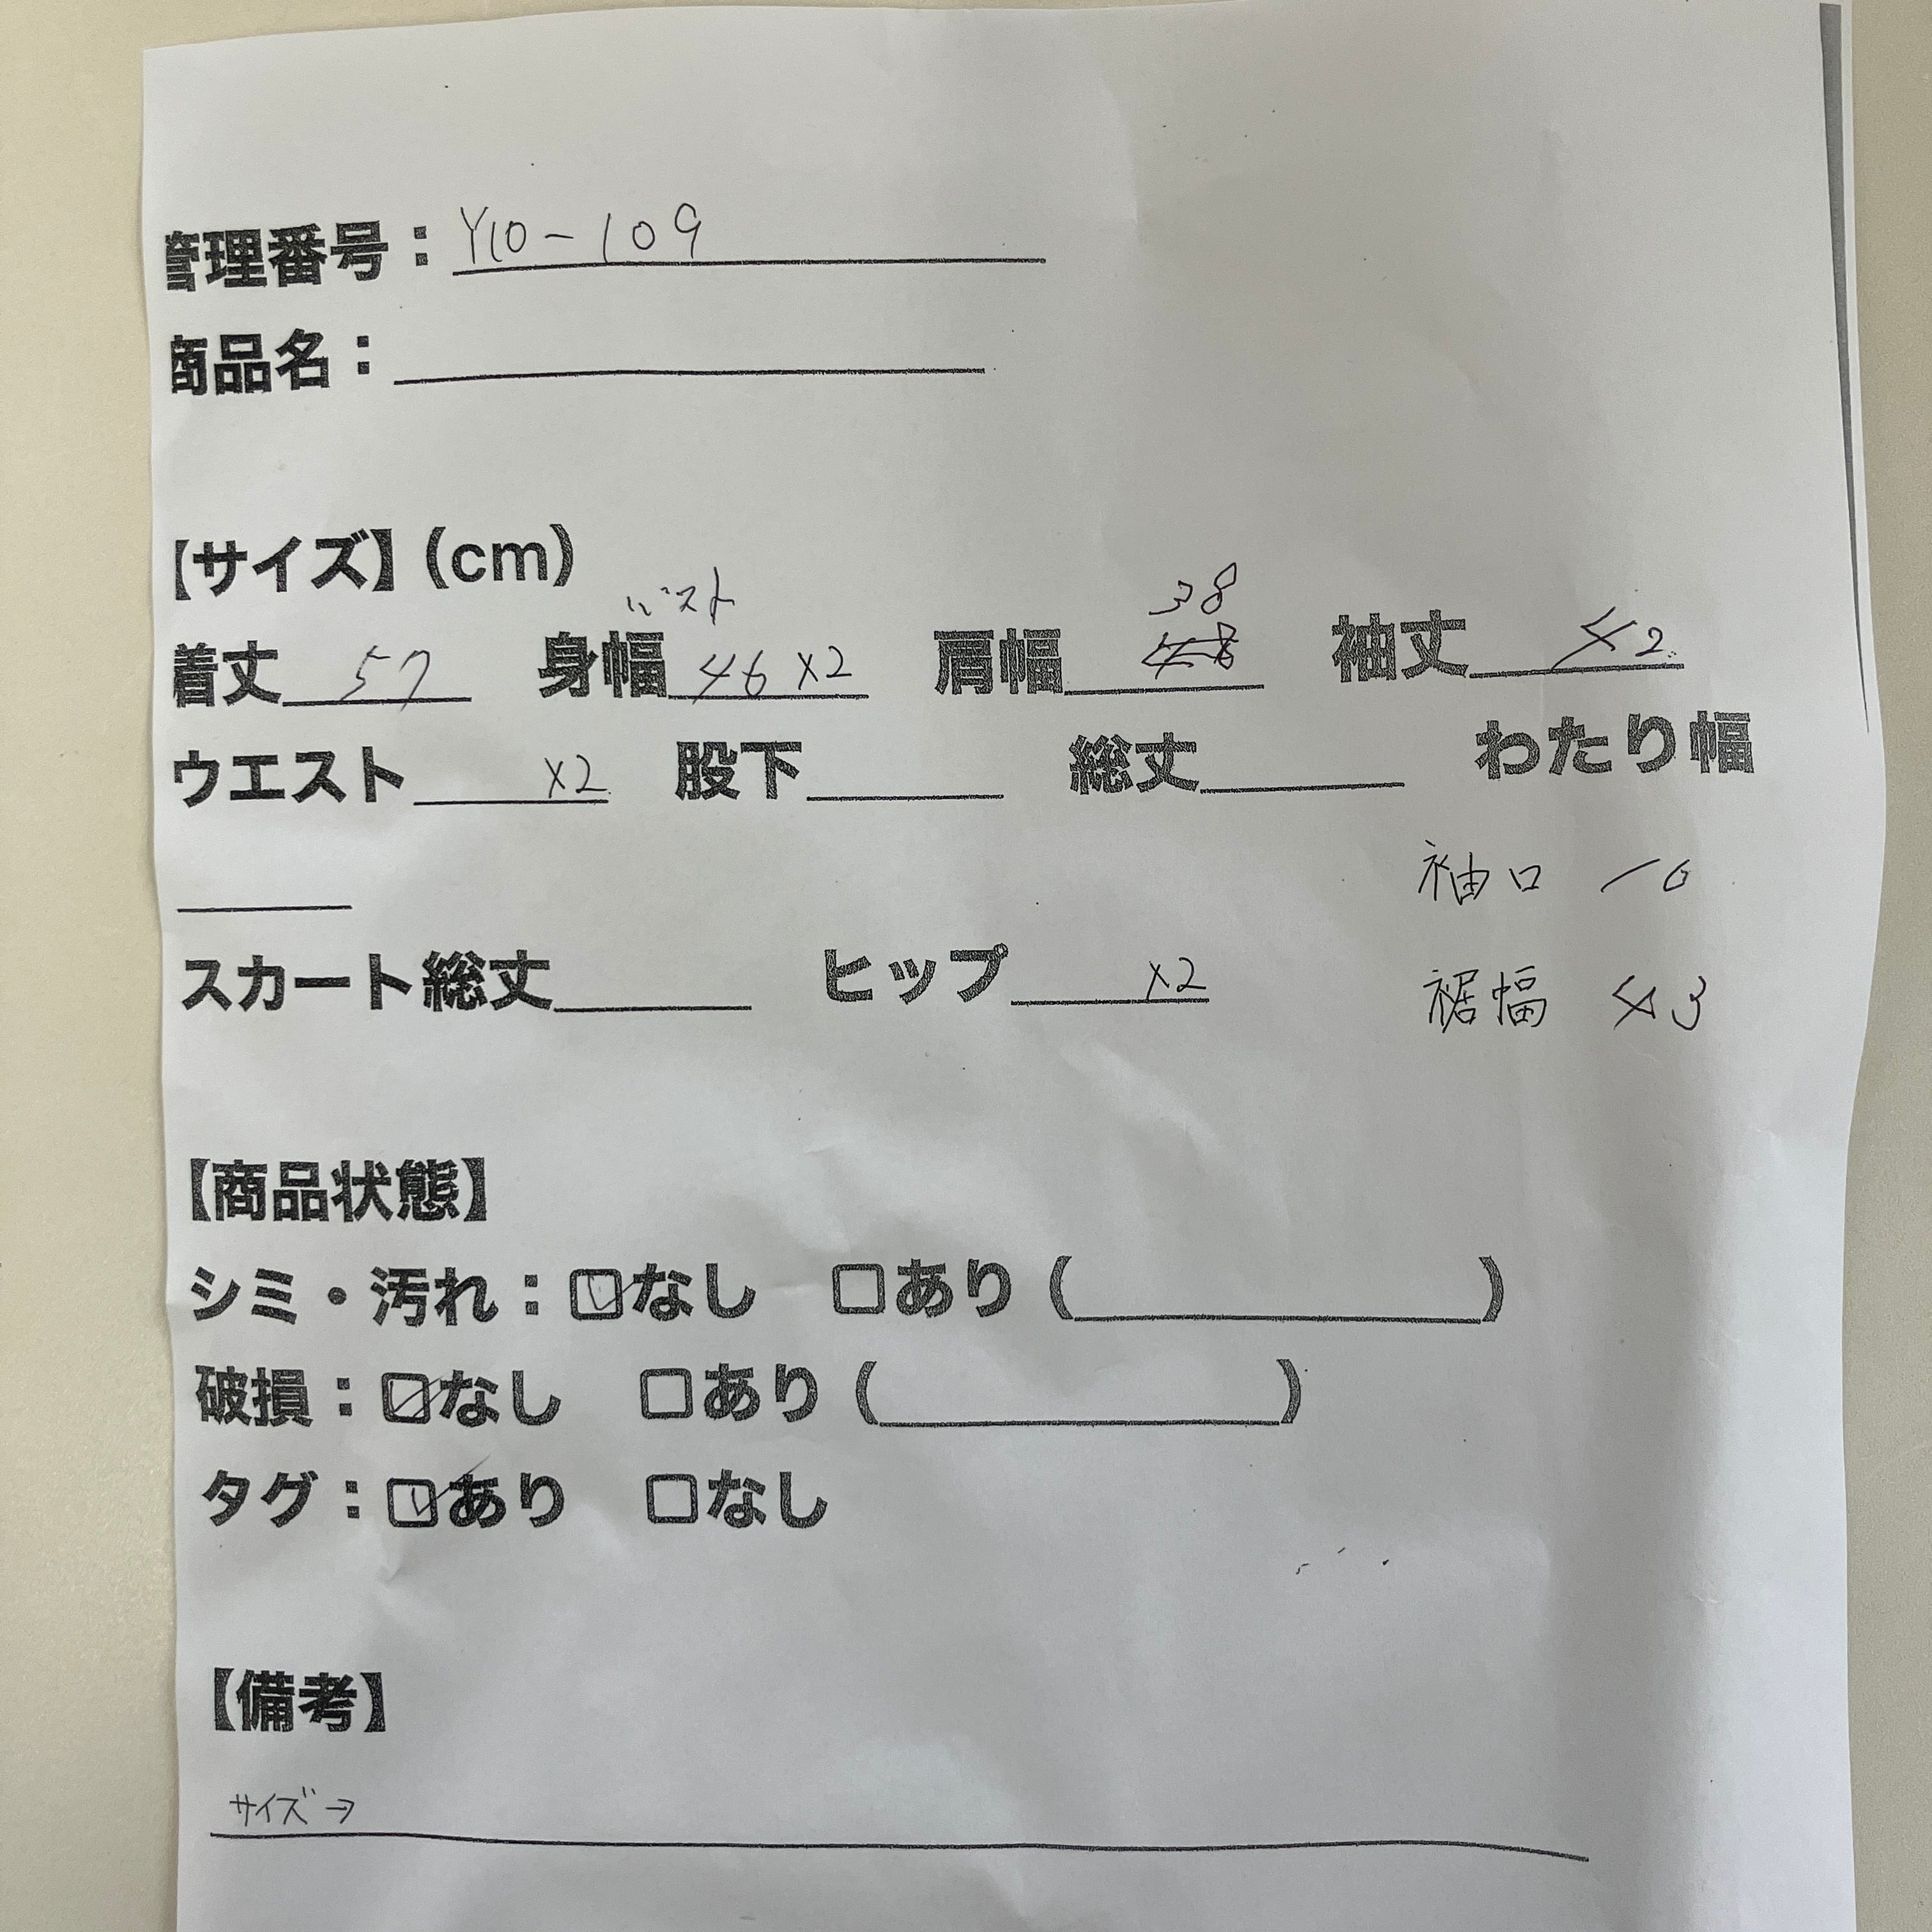 管理番号：Y10-109
商品名：
【サイズ】（cm）
バスト 38
着丈 57 身幅 46 x2 肩幅 48 袖丈 42
ウエスト x2 股下 総丈 わたり幅
袖口 10
スカート総丈 ヒップ x2 裾幅 43
【商品状態】
シミ・汚れ：☑なし □あり（ ）
破損：☑なし □あり（ ）
タグ：☑あり □なし
【備考】
サイズ→